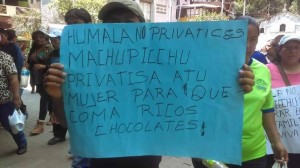 HUMALA NO PRIVATICES
MACHUPICCHU
PRIVATISA A TU
MUJER PARA ! QUE
COMA RICOS
CHOCOLATES!